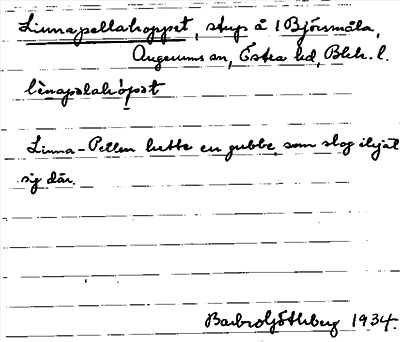 Linnapellahoppet, stup å 1 Björsmåla,
Augerums sn, Östra hd, Blek. l.
lìnapälahópət
Linna-Pellen hette en gubbe, som slog ihjäl
sig där.
Barbro Götlberg 1934.